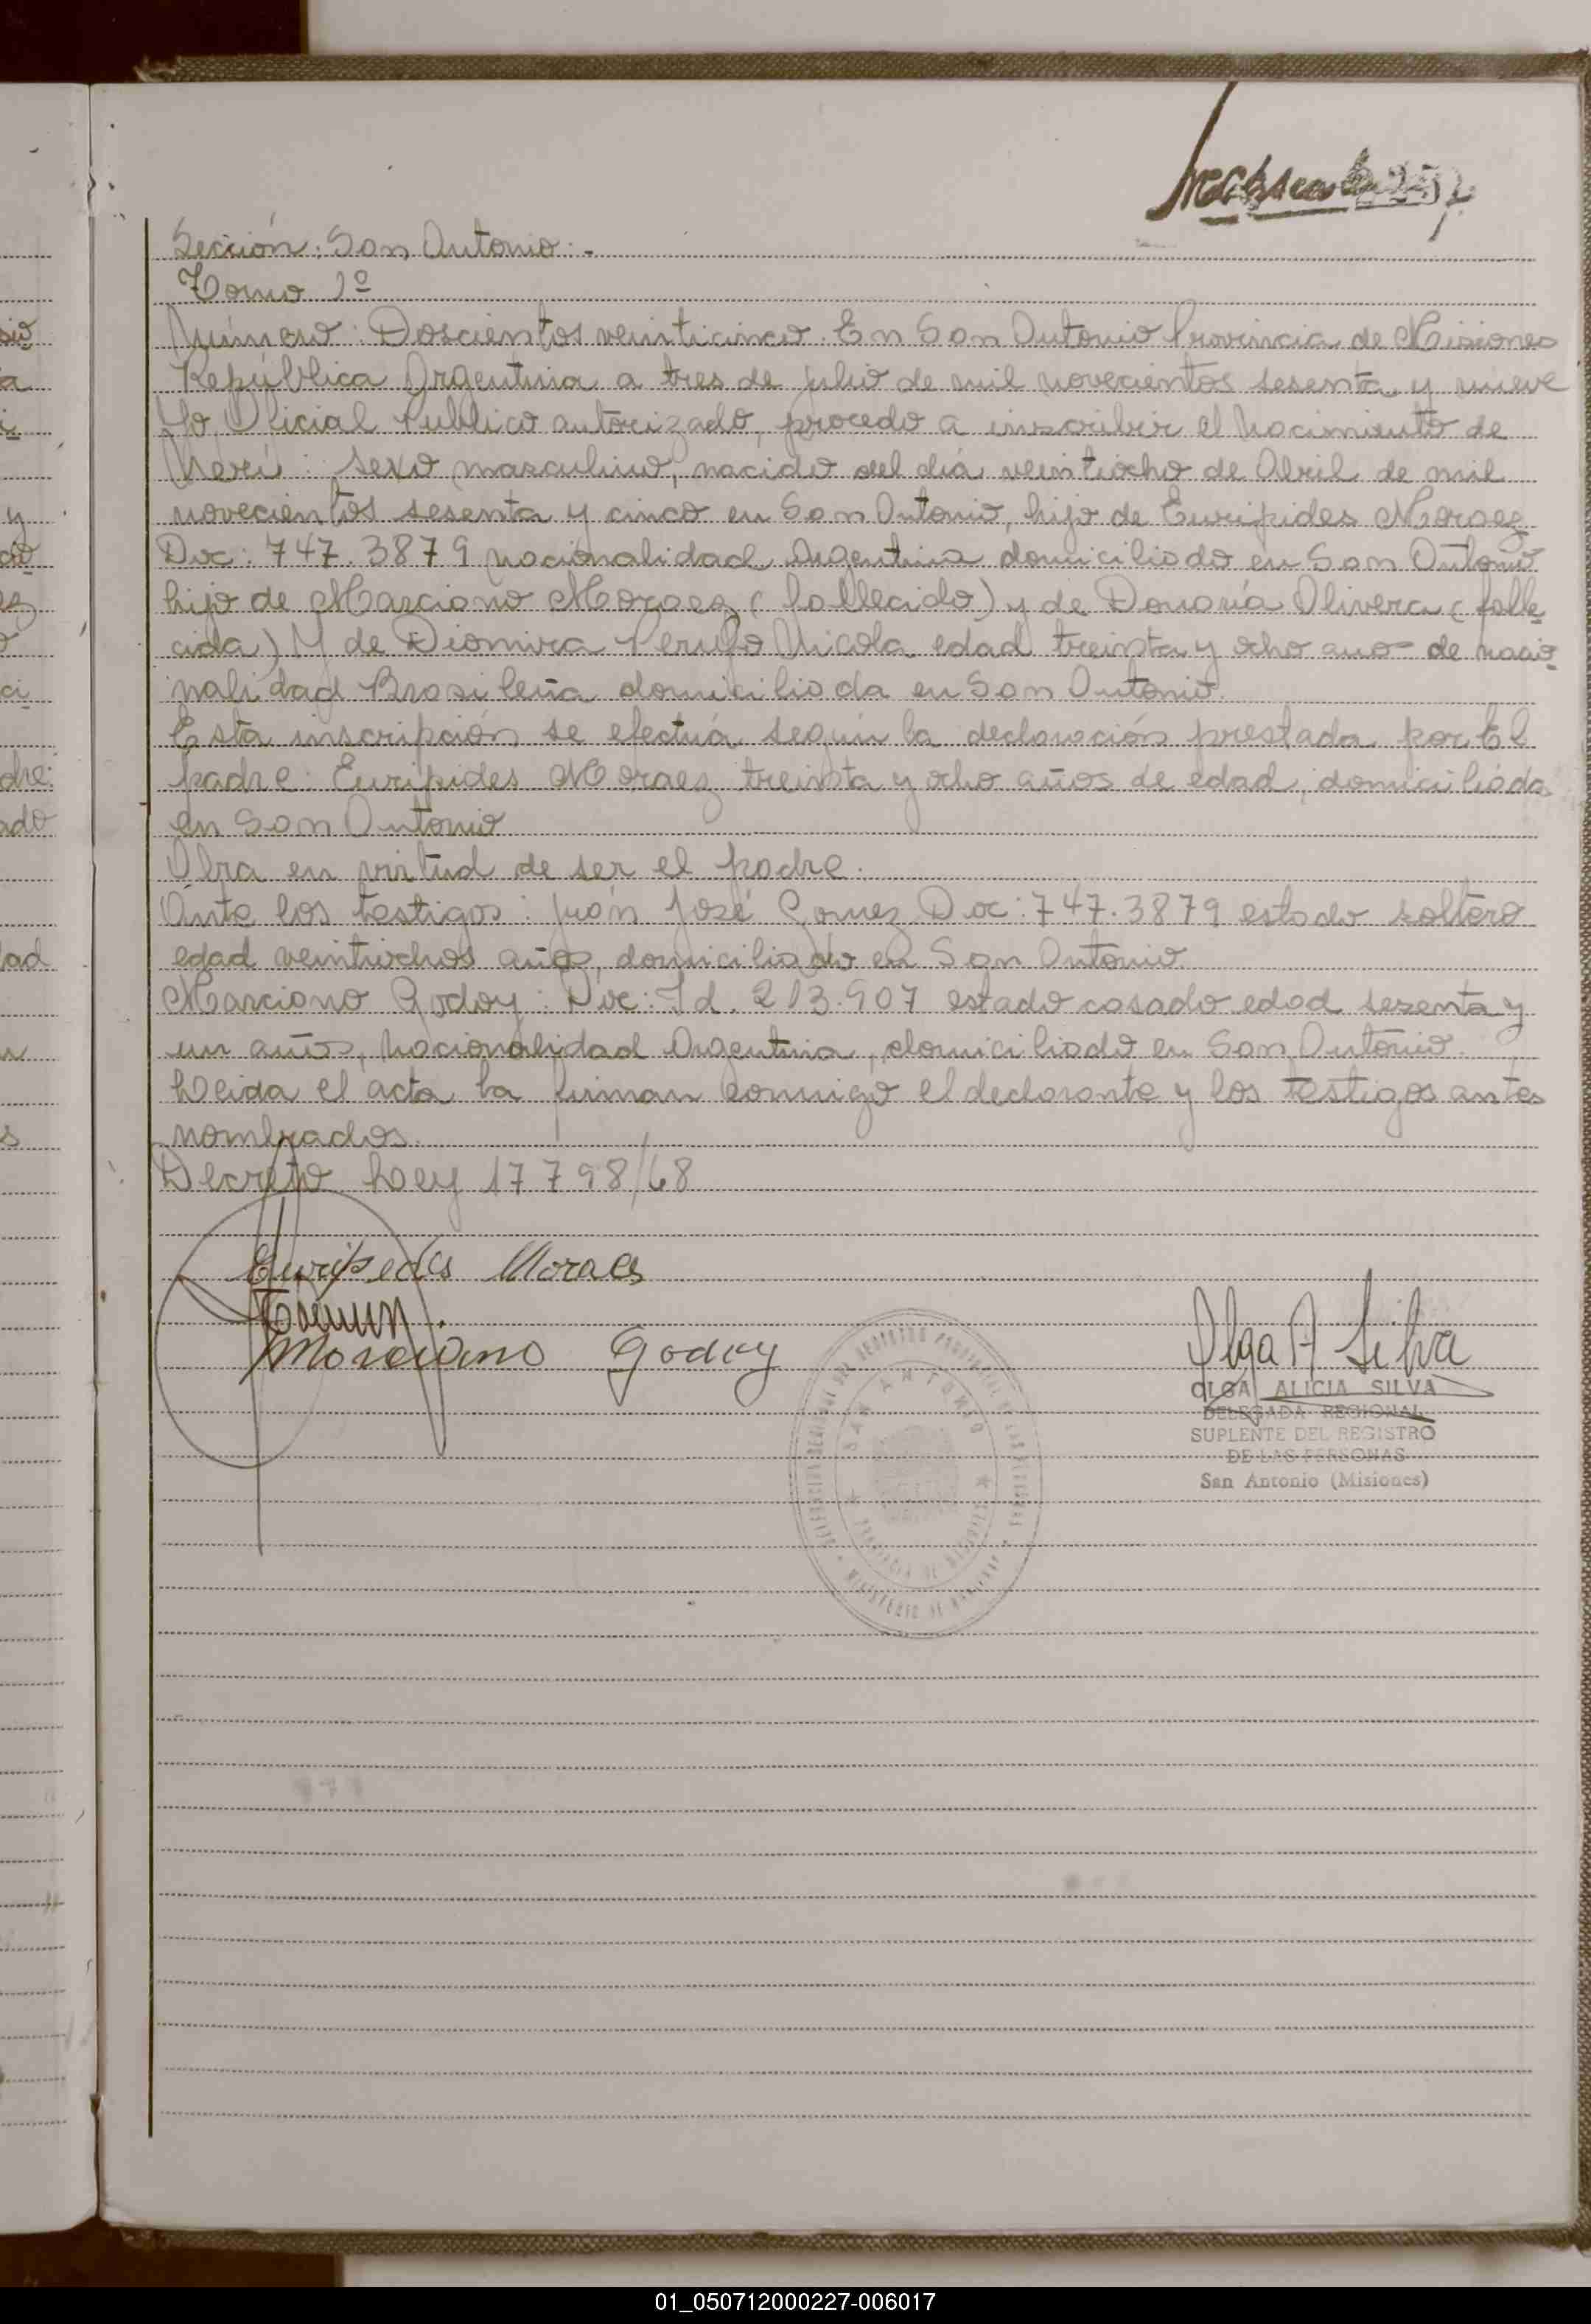 Sección: San Antonio:-
Tomo 1º
Número: Doscientos veinticinco. En San Antonio Provincia de Misiones
República Argentina a tres de julio de mil novecientos sesenta y nueve
Yo, Oficial Publico autorizado, procedo a inscribir el Nacimiento de
Neri: sexo masculino, nacido del día veintiocho de Abril de mil
novecientos sesenta y cinco en San Antonio, hijo de Euripides Moraez
Doc: 747.3879 nacionalidad Argentina domiciliado en San Antonio
hijo de Marciano Moraez (fallecido) y de Donaria Olivera (falle
cida) Y de Diomira Perufo Nicola edad treinta y ocho años de nacio
nalidad Brasileña domiciliada en San Antonio.
Esta inscripción se efectúa según la declaración prestada por El
padre: Euripides Moraez treinta y ocho años de edad, domiciliada
en San Antonio
Obra en virtud de ser el padre.
Ante los testigos: Juán José Gomez Doc: 747.3879 estado soltero
edad veintiochos años, domiciliado en San Antonio
Marciano Godoy: Doc: Id. 213.907 estado casado edad sesenta y
un años, Nacionalidad Argentina, domiciliado en San Antonio.
Leida el acta la firman conmigo el declarante y los testigos antes
nombrados.
Decreto Ley 17798/68
Euripedes Moraes
Godoy
Olga A Silva
OLGA ALICIA SILVA
DELEGADA REGIONAL
SUPLENTE DEL REGISTRO
DE LAS PERSONAS
San Antonio (Misiones)
SAN ANTONIO
PROVINCIA DE MISIONES
01_050712000227-006017